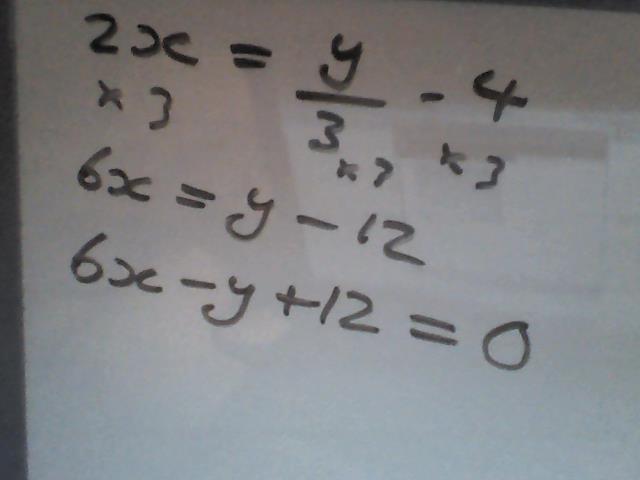 2x = y/3 - 4
x 3 x 3 x 3
6x = y - 12
6x - y + 12 = 0